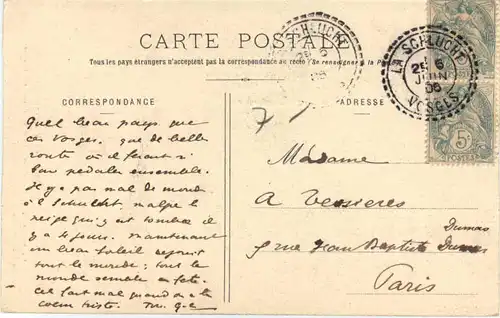 CARTE POSTALE
Tous les pays étrangers n'acceptent pas la correspondance au recto (Se renseigner à la Po
CORRESPONDANCE
ADRESSE
LA SCHLUCHE
25 6
JUIN
05
VOSGES
SCHLUCHE
5c
POSTES
7
Quel beau pays que
ces Vosges. que de belles
routes où il ferait si
bon pedaler ensemble.
Il y a pas mal de monde
à Schlucht, malgré la
neige qui y est tombée il
y a 4 jours. Maintenant
un beau soleil
tout le monde; tout le
monde semble en fête.
Cel fait mal quand on a le
coeur triste.
Madame
A Vessieres
5 rue Jean Baptiste Dumas
Dumas
Paris